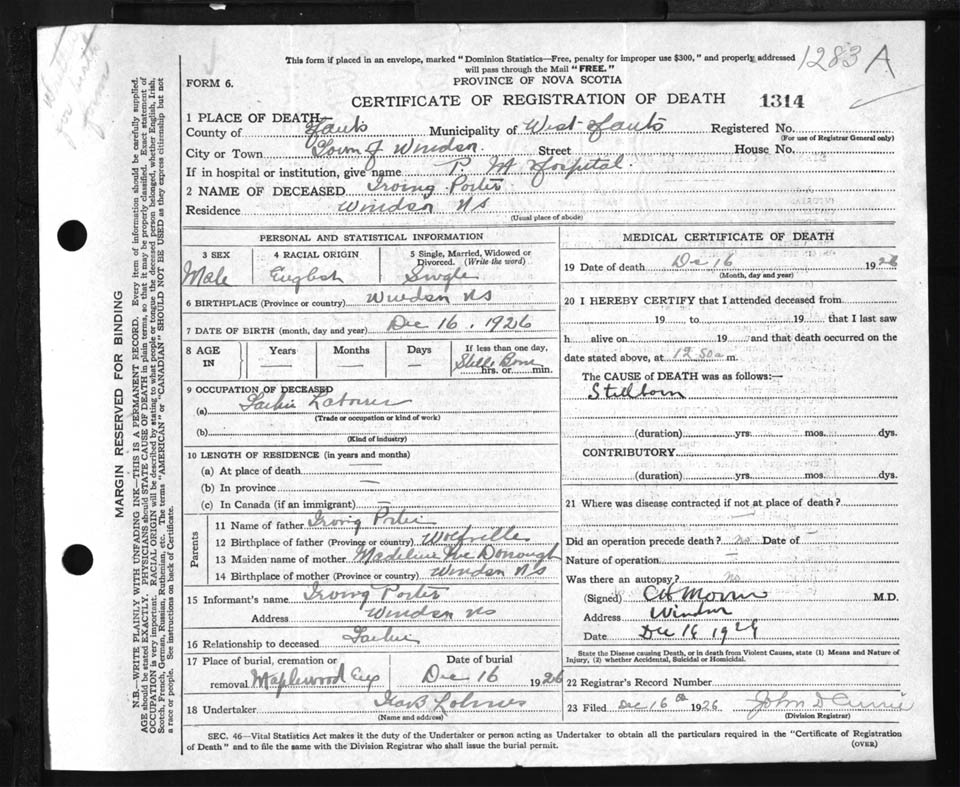 This form if placed in an envelope, marked "Dominion Statistics—Free, penalty for improper use $300," and properly addressed
will pass through the Mail "FREE."
1283 A
FORM 6.
PROVINCE OF NOVA SCOTIA
CERTIFICATE OF REGISTRATION OF DEATH 1314
1 PLACE OF DEATH—
County of Hants Municipality of West Hants Registered No.
(For use of Registrar General only)
City or Town Town of Windsor Street House No.
If in hospital or institution, give name P. M. Hospital
2 NAME OF DECEASED Irving Porter
Residence Windsor NS
(Usual place of abode)
PERSONAL AND STATISTICAL INFORMATION
3 SEX 4 RACIAL ORIGIN 5 Single, Married, Widowed or Divorced. (Write the word)
Male English Single
6 BIRTHPLACE (Province or country) Windsor NS
7 DATE OF BIRTH (month, day and year) Dec 16. 1926
8 AGE IN Years Months Days If less than one day, hrs. or min.
Still Born
9 OCCUPATION OF DECEASED
(a) Father Laborer
(Trade or occupation or kind of work)
(b)
(Kind of industry)
10 LENGTH OF RESIDENCE (in years and months)
(a) At place of death
(b) In province —
(c) In Canada (if an immigrant) —
Parents
11 Name of father Irving Porter
12 Birthplace of father (Province or country) Wolfville
13 Maiden name of mother Madeline Mc Donough
14 Birthplace of mother (Province or country) Windsor NS
15 Informant's name Irving Porter
Address Windsor NS
16 Relationship to deceased Father
17 Place of burial, cremation or removal Maplewood Cem Date of burial Dec 16 1926
18 Undertaker
(Name and address)
MEDICAL CERTIFICATE OF DEATH
19 Date of death Dec 16 1926
(Month, day and year)
20 I HEREBY CERTIFY that I attended deceased from
19 to 19 that I last saw
h alive on 19 and that death occurred on the
date stated above, at 12 50 a m.
The CAUSE of DEATH was as follows:—
Stillborn
(duration) yrs. mos. dys.
CONTRIBUTORY
(duration) yrs. mos. dys.
21 Where was disease contracted if not at place of death?
—
Did an operation precede death? no Date of —
Nature of operation —
Was there an autopsy? no
(Signed) M.D.
Address Windsor
Date Dec 16 1926
State the Disease causing Death, or in death from Violent Causes, state (1) Means and Nature of
Injury, (2) whether Accidental, Suicidal or Homicidal.
22 Registrar's Record Number
23 Filed Dec 16th 1926 John D Currie
(Division Registrar)
SEC. 46—Vital Statistics Act makes it the duty of the Undertaker or person acting as Undertaker to obtain all the particulars required in the "Certificate of Registration
of Death" and to file the same with the Division Registrar who shall issue the burial permit. (OVER)
MARGIN RESERVED FOR BINDING
N.B.—WRITE PLAINLY WITH UNFADING INK—THIS IS A PERMANENT RECORD. Every item of information should be carefully supplied.
AGE should be stated EXACTLY. PHYSICIANS should STATE CAUSE OF DEATH in plain terms, so that it may be properly classified. Exact statement of
OCCUPATION is very important. RACIAL ORIGIN will be described by stating to what people or tongue the deceased person belonged, whether English, Irish,
Scotch, French, German, Russian, Ruthenian, etc. The terms "AMERICAN" or "CANADIAN" SHOULD NOT BE USED as they express citizenship but not
a race or people. See instructions on back of Certificate.